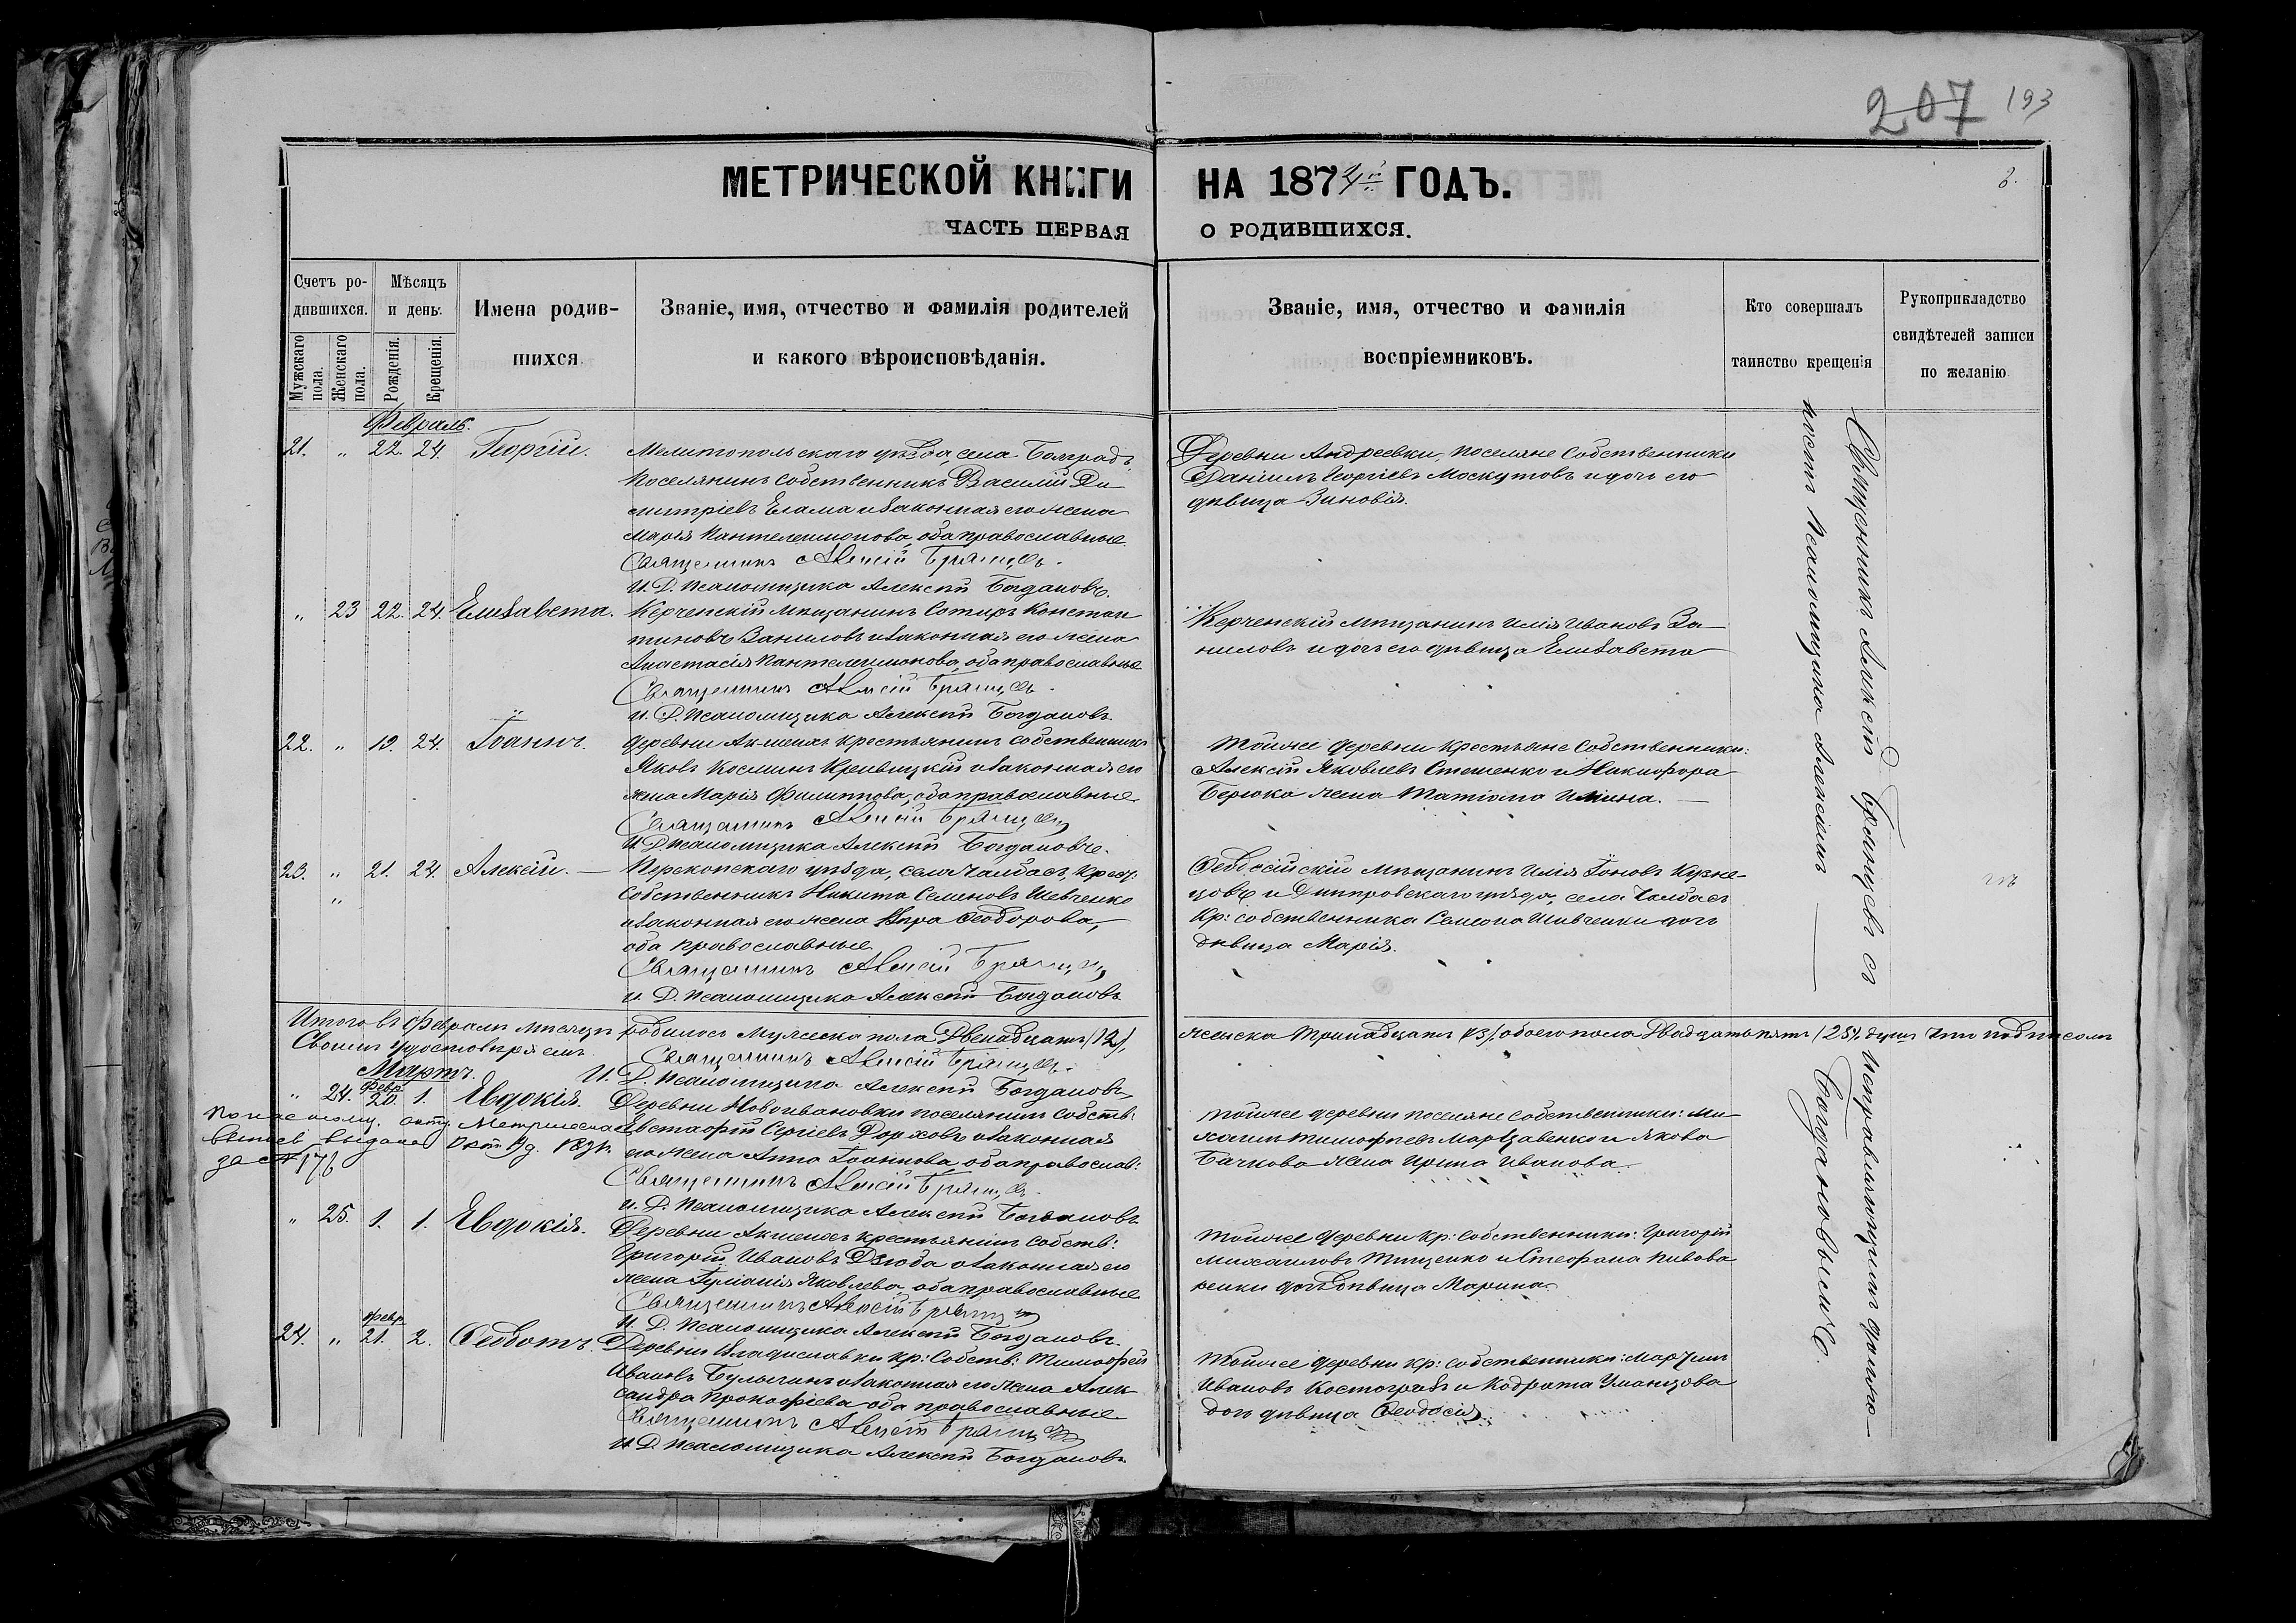 207 193
МЕТРИЧЕСКОЙ КНИГИ НА 1874й ГОДЪ.
ЧАСТЬ ПЕРВАЯ О РОДИВШИХСЯ.
Счетъ родившихся.
Мужескаго пола.
Женскаго пола.
Мѣсяцъ и день.
Рожденія.
Крещенія.
Имена родив-
шихся
Званіе, имя, отчество и фамилія родителей
и какого вѣроисповѣданія.
Званіе, имя, отчество и фамилія
воспріемниковъ.
Кто совершалъ
таинство крещенія
Рукоприкладство
свидѣтелей записи
по желанію
Февраль.
21. " 22. 24. Георгій.
Мелитопольскаго уѣзда, села Болградъ
поселянинъ собственникъ Василій Ди-
митріевъ Елама и законная его жена
Марія Пантелеимонова, оба православные.
Священникъ Алексій Брянцевъ.
И. Д. Псаломщика Алексѣй Богдановъ.
Деревни Андреевки, поселяне собственники
Даніилъ Георгіевъ Москутовъ и дочь его
дѣвица Зиновія.
" 23 22. 24. Елизавета.
Керченскій мѣщанинъ Сотиръ Констан-
тиновъ Заниловъ и законная его жена
Анастасія Пантелеимонова, оба православные
Священникъ Алексій Брянцевъ.
И. Д. Псаломщика Алексѣй Богдановъ.
Керченскій мѣщанинъ Илія Ивановъ За-
ниловъ и дочь его дѣвица Елизавета
22. " 19. 24. Іоаннъ.
Деревни Акменъ крестьянинъ собственникъ
Яковъ Косминъ Кривицкій и законная его
жена Марія Филиппова, оба православные.
Священникъ Алексій Брянцевъ
И. Д. Псаломщика Алексѣй Богдановъ.
Той же деревни крестьяне собственники:
Алексій Яковлевъ Стешенко и Никифора
Берюка жена Татіана Ильина.
23. " 21. 24. Алексій.
Перекопскаго уѣзда, села Чалбасъ, крест.
собственникъ Никита Семеновъ Шевченко
и законная его жена Кира Ѳеодорова,
оба православные
Священникъ Алексій Брянцевъ
И. Д. Псаломщика Алексѣй Богдановъ
Ѳеодосійскій мѣщанинъ Илія Іоновъ Кузне-
цовъ и Днѣпровскаго уѣзда, села Чалбасъ
кр: собственника Семена Шевченки дочь
дѣвица Марія.
Итого въ Февралѣ мѣсяцѣ родилось мужеска пола Двенадцать (12), женска Тринадцать (13), обоего пола Двадцать пять (25) душъ что подписомъ
своимъ удостовѣряемъ.
Священникъ Алексій Брянцевъ.
И. Д. Псаломщика Алексѣй Богдановъ
Мартъ.
" 24. Февр. 20. 1. Евдокія.
Деревни Новоивановки поселянинъ собств:
Евстафій Сергіевъ Дорховъ и законная
его жена Анна Іоаннова, оба православ:
Священникъ Алексій Брянцевъ.
И. Д. Псаломщика Алексѣй Богдановъ
Той же деревни поселяне собственники: Ми-
хаилъ Тимофѣевъ Марзавенко и Якова
Бачкова жена Ирина Иванова.
По настоящ. акту Метрическая
выпись выдана
за № 176
" 25. 1. 1. Евдокія.
Деревни Акменъ крестьянинъ собств:
Григорій Ивановъ Дзюба и законная его
жена Іуліанія Яковлева, оба православные
Священникъ Алексій Брянцевъ
И. Д. Псаломщика Алексѣй Богдановъ.
Той же деревни кр: собственники: Григорій
Михаиловъ Тищенко и Стефана Пивова-
ренки дочь дѣвица Марина.
24. " Февр. 21. 2. Ѳеодотъ.
Деревни Владиславки кр: собств: Тимофей
Ивановъ Булыгинъ и законная его жена Алек-
сандра Прокофіева оба православные
Священникъ Алексій Брянцевъ
И. Д. Псаломщика Алексѣй Богдановъ.
Той же деревни кр: собственники: Мартинъ
Ивановъ Костогризъ и Кодрата Уманцова
дочь дѣвица Ѳеодосія.
Священникъ Алексій Брянцевъ съ
Исправляющимъ должно-
ность Псаломщика Алексѣемъ
Богдановымъ.